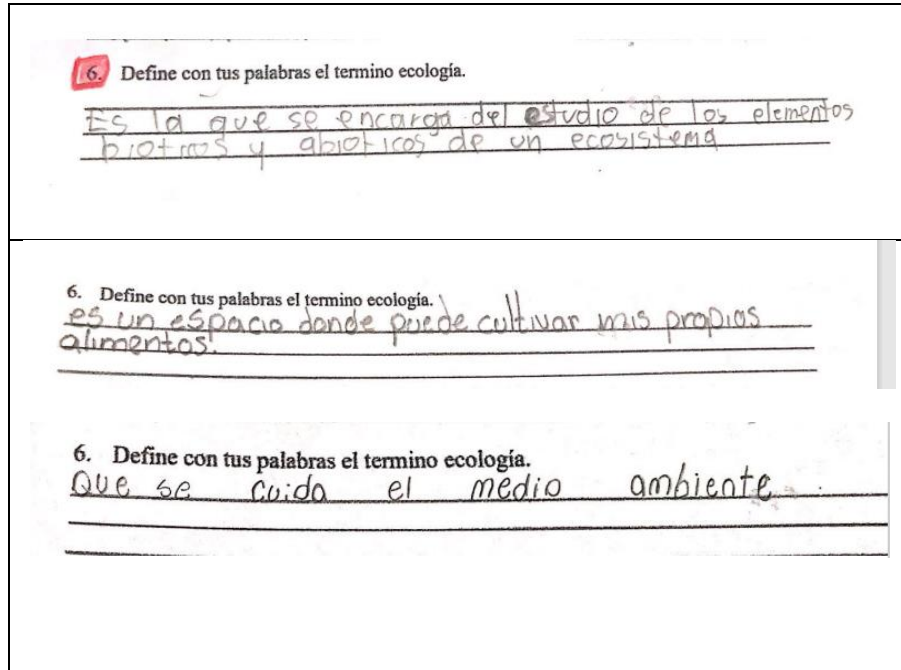 6. Define con tus palabras el termino ecología.
Es la que se encarga del estudio de los elementos
bioticos y abioticos de un ecosistema
6. Define con tus palabras el termino ecología.
es un espacio donde puede cultivar mis propios
alimentos.
6. Define con tus palabras el termino ecología.
Que se cuida el medio ambiente.